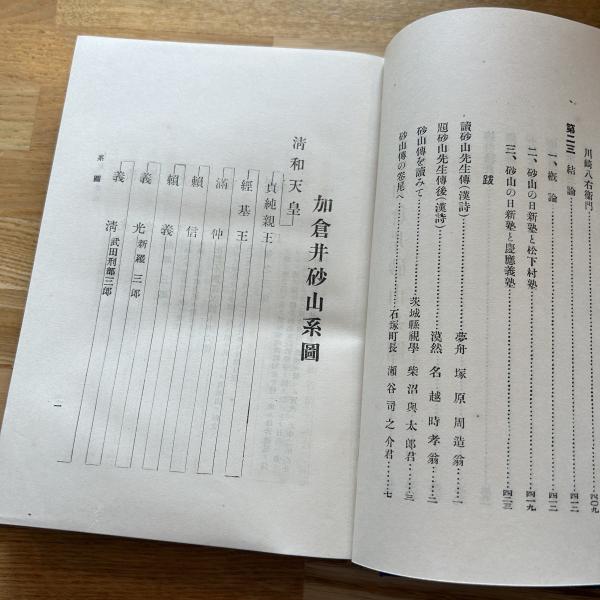 川崎八右衞門……四〇九
第二三 結論……四一二
一、概論……四一二
二、砂山の日新塾と松下村塾……四一九
三、砂山の日新塾と慶應義塾……四二三
跋
讀砂山先生傳(漢詩)……夢舟 塚原周造翁……一
題砂山先生傳後(漢詩)……漠然 名越時孝翁……二
砂山傳を讀みて……茨城縣視學 柴沼與太郎君……三
砂山傳の卷尾へ……石塚町長 瀬谷司之介君……七
加倉井砂山系圖
清和天皇
貞純親王
經基王
滿仲
賴信
賴義
義光 新羅三郎
義清 武田刑部三郎
系圖
一